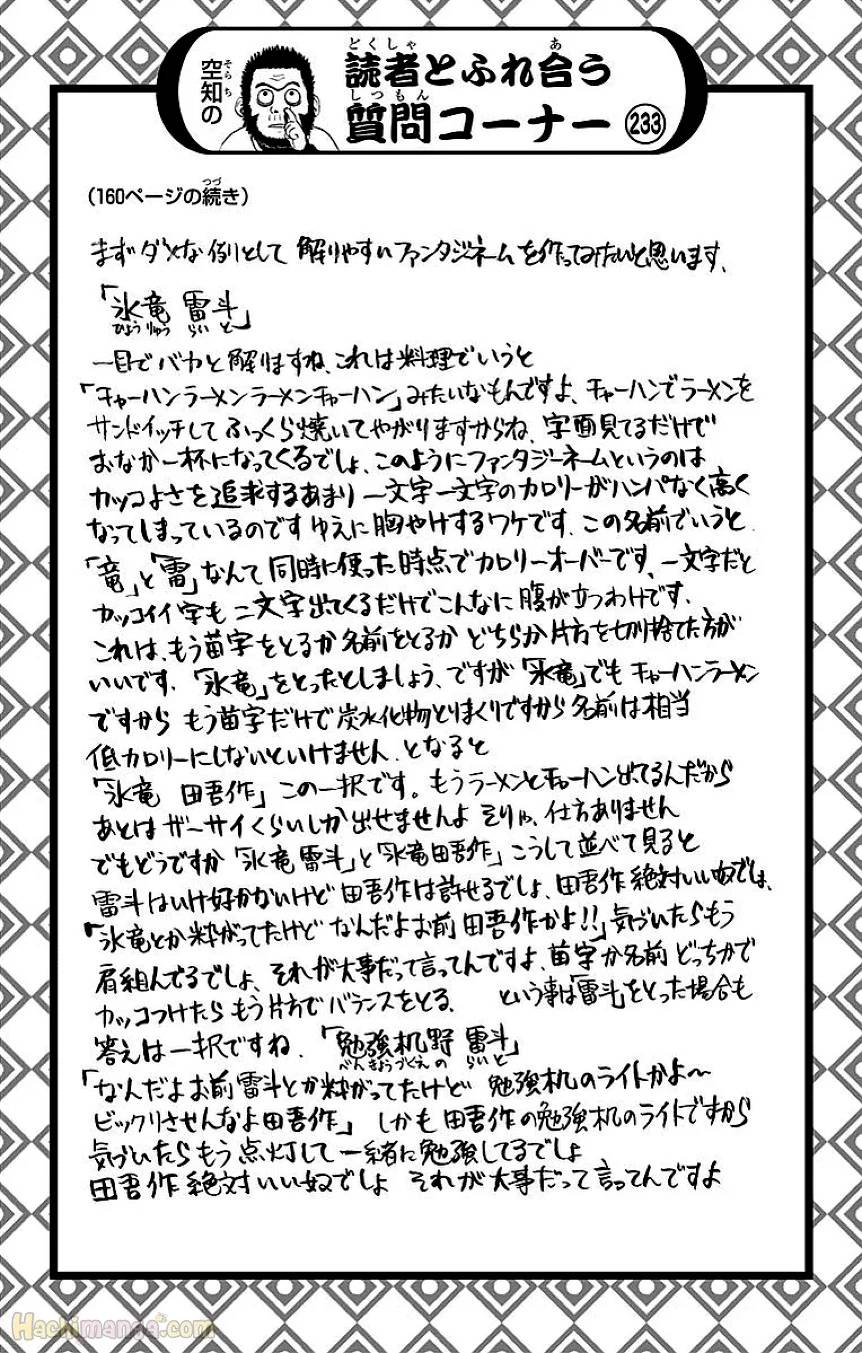 空知の
読者とふれ合う
質問コーナー 233
(160ページの続き)
まずダメな例として 解りやすいファンタジネームを作ってみたいと思います、
「氷竜 雷斗」
ひょうりゅう らいと
一目でバカと解りますね、これは料理でいうと
「チャーハンラーメンラーメンチャーハン」みたいなもんですよ、チャーハンでラーメンを
サンドイッチしてふっくら焼いてやがりますからね、字面見てるだけで
おなか一杯になってくるでしょ、このようにファンタジーネームというのは
カッコよさを追求するあまり 一文字一文字のカロリーがハンパなく高く
なってしまっているのです ゆえに胸やけするワケです、この名前でいうと
「竜」と「雷」なんて同時に使った時点でカロリーオーバーです、一文字だと
カッコイイ字も二文字出てくるだけでこんなに腹が立つわけです、
これは、もう苗字をとるか名前をとるか どちらか片方を切り捨てた方が
いいです、「氷竜」をとったとしましょう、ですが「氷竜」でもチャーハンラーメン
ですから もう苗字だけで炭水化物とりまくりですから名前は相当
低カロリーにしないといけません、となると
「氷竜 田吾作」この一択です。もうラーメンとチャーハン出てるんだから
あとはザーサイくらいしか出せませんよ そりゃ、仕方ありません
でもどうですか「氷竜雷斗」と「氷竜田吾作」こうして並べて見ると
雷斗はいけ好かないけど田吾作は許せるでしょ、田吾作絶対いい奴では、
「氷竜とか粋がってたけど なんだよお前田吾作かよ!!」気づいたらもう
肩組んでるでしょ、それが大事だって言ってんですよ、苗字か名前 どっちかで
カッコつけたら もう片方でバランスをとる、 という事は「雷斗」をとった場合も
答えは一択ですね、「勉強机野 雷斗」
べんきょうづくえの らいと
「なんだよお前雷斗とか粋がってたけど 勉強机のライトかよ〜
ビックリさせんなよ田吾作」 しかも 田吾作の勉強机のライトですから
気づいたらもう点灯して 一緒に勉強してるでしょ
田吾作絶対いい奴でしょ それが大事だって言ってんですよ
Hachimanga.com